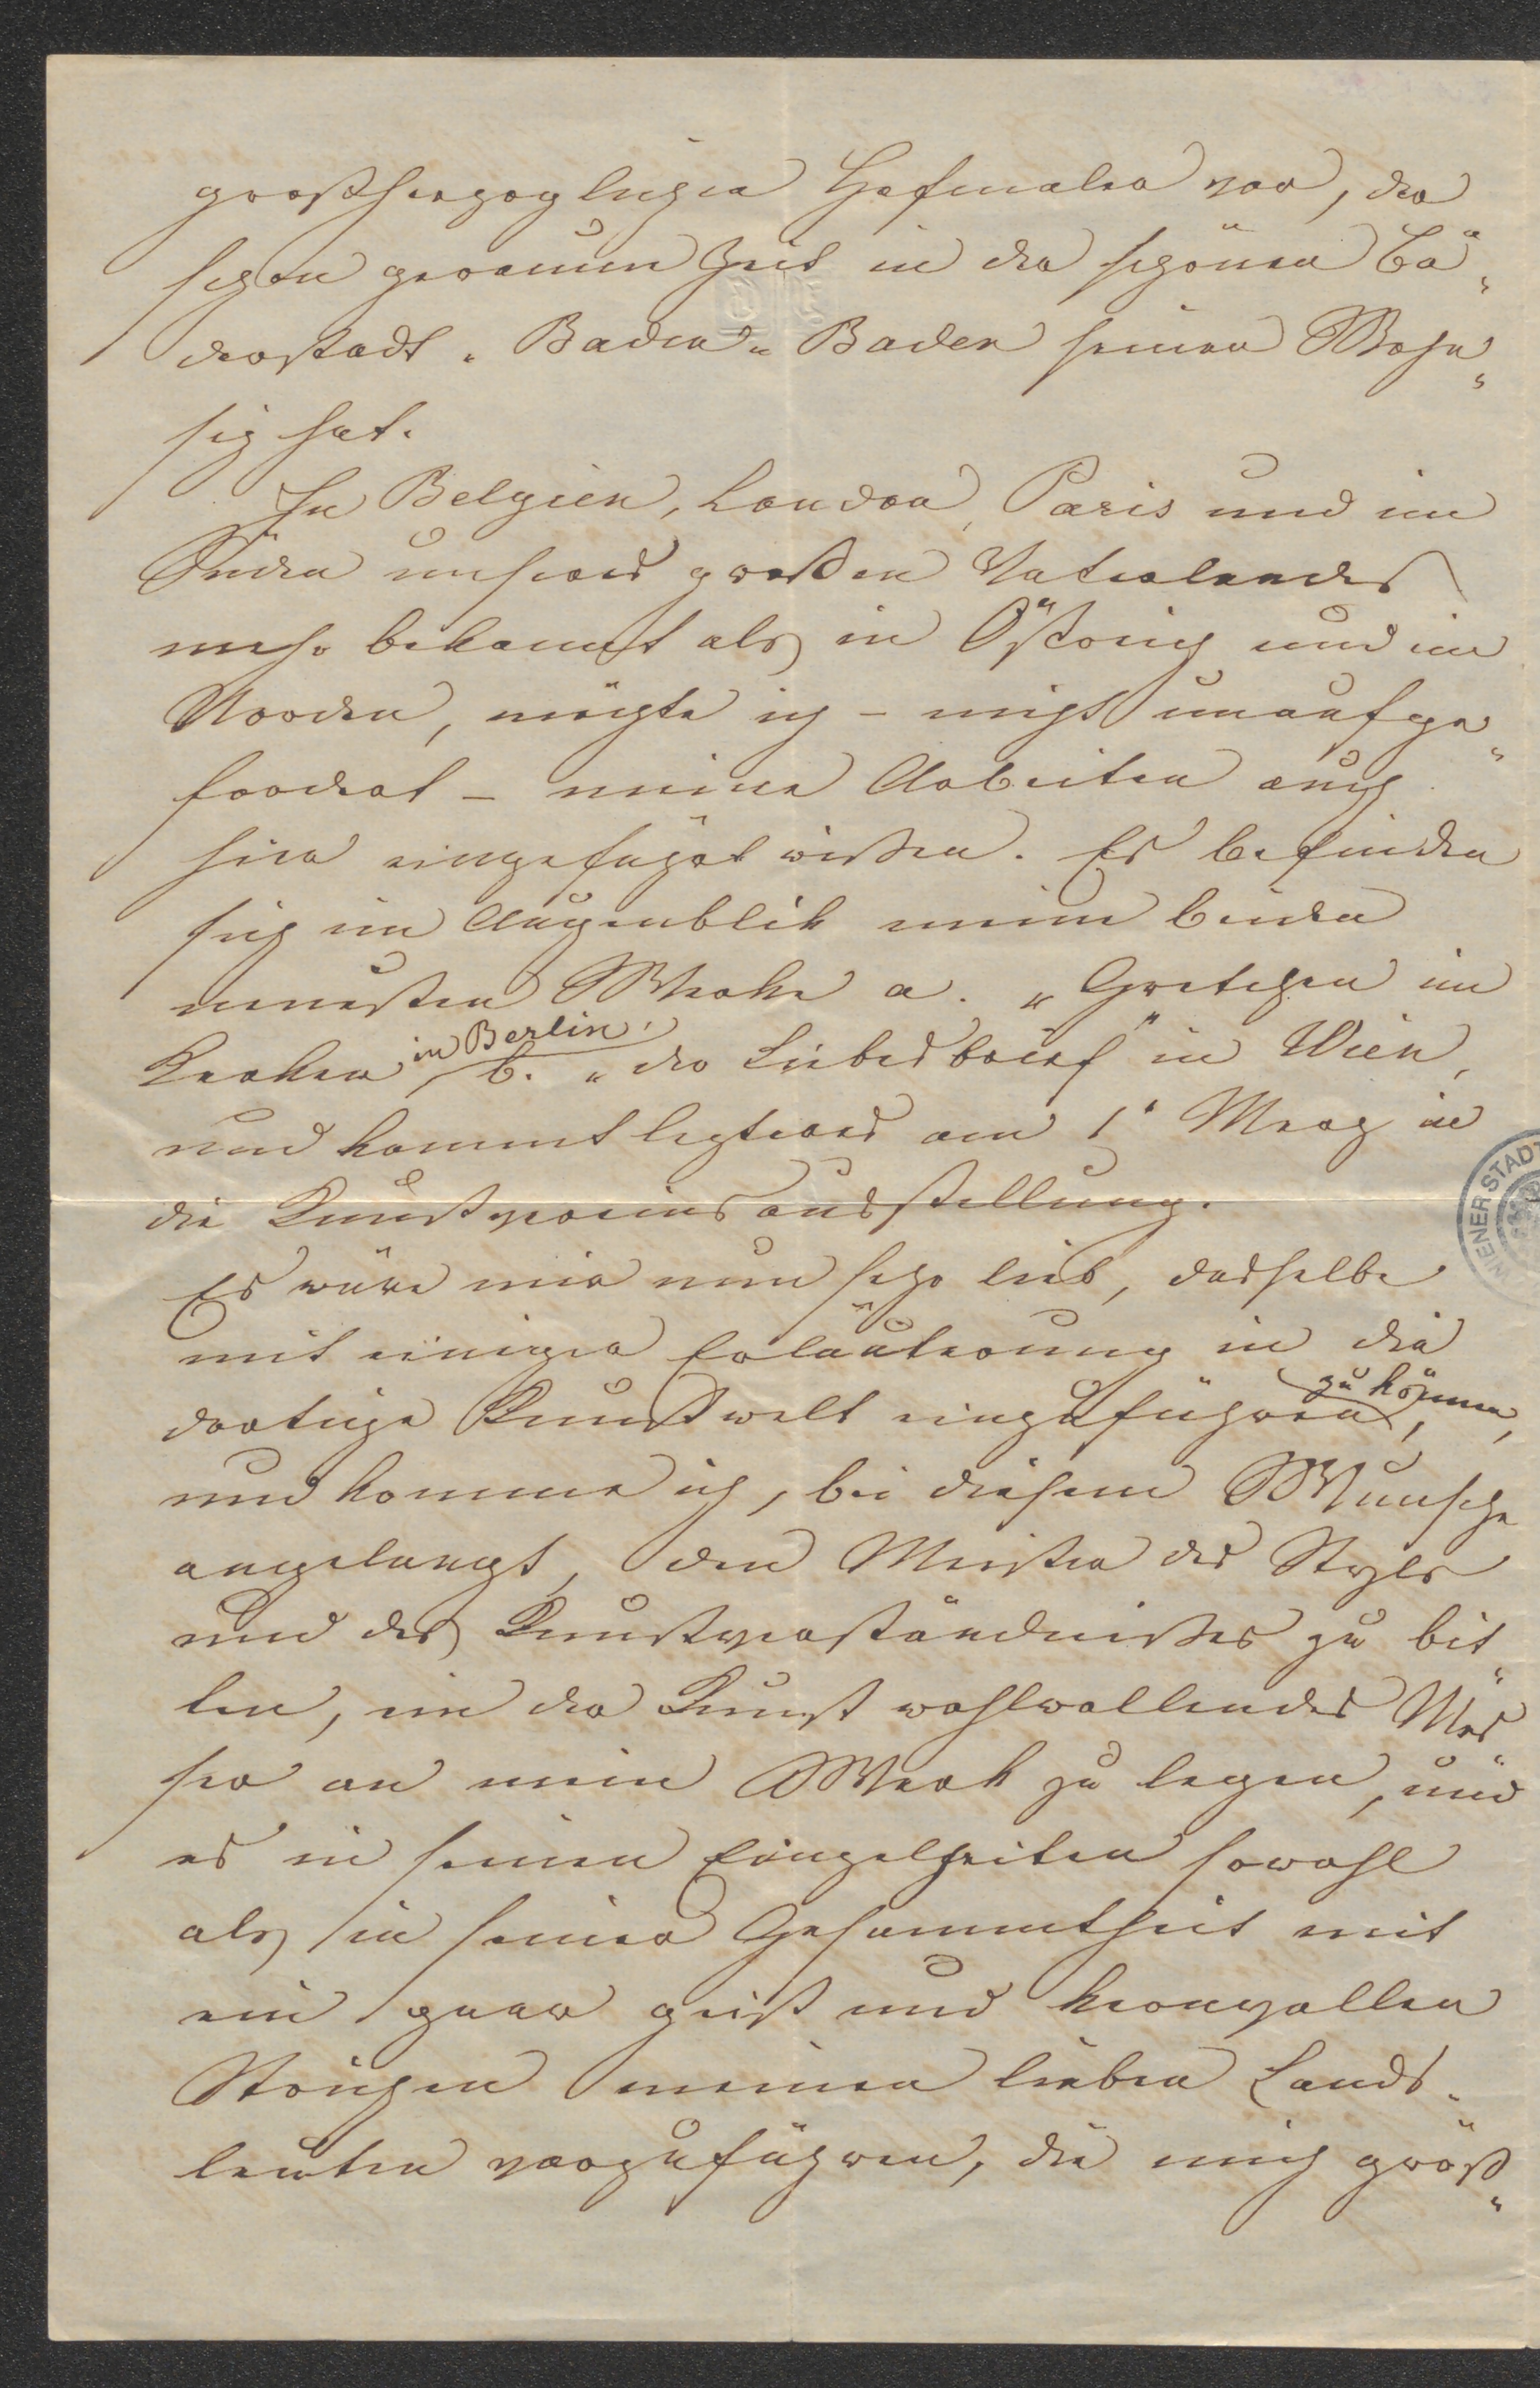 großherzoglichen Hofmaler vor, der
schon geraume Zeit in der schönen Bä„
derstadt „ Baden „ Baden seinen Wohn„
sitz hat.
In Belgien, London, Paris und im
Süden unseres großen Vaterlandes
mehr bekannt als in Östreich und im
Norden, möchte ich – nicht unaufge„
fordert – meine Arbeiten auch
hier eingeführt wißen. Es befinden
sich im Augenblick meine beiden
neuesten Werke a. „Gretchen im
Kerker in Berlin, b. „der Liebesbrief" in Wien,
und kommt letzteres am 1t März in
die Kunstvereinsausstellung.
Es wäre mir nun sehr lieb, dasselbe
mit einiger Erläuterung in die
dortige Kunstwelt einzuführen zu können,
und komme ich, bei diesem Wunsche
angelangt, den Meister des Styls
und des Kunstverständnißes zu bit„
ten, ein der Kunst wohlwollendes Mes„
ser an mein Werk zu legen, und
es in seinen Einzelheiten sowohl
als in seiner Gesammtheit mit
ein paar geist und kernvollen
Strichen meinen lieben Lands„
leuten vorzuführen, die mich größ„
WIENER STADT